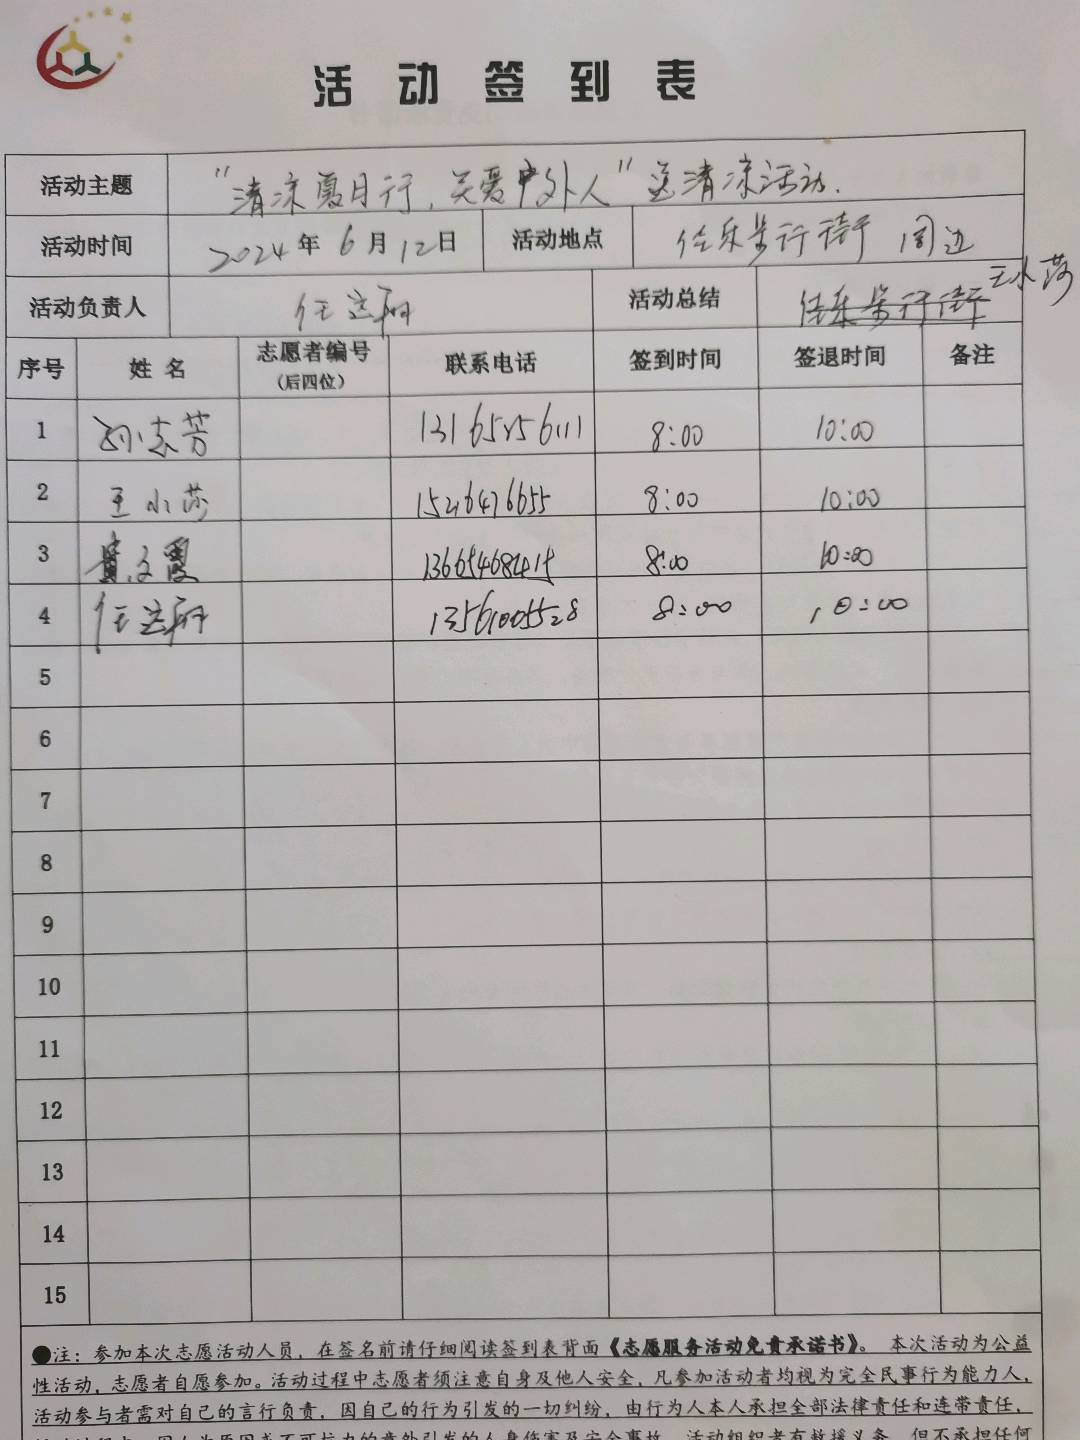 活动签到表
活动主题 "清凉夏日行,关爱户外人"送清凉活动.
活动时间 2024年6月12日 活动地点 佳乐步行街 周边
活动负责人 任 活动总结 佳乐步行街 王小莎
序号 姓名 志愿者编号(后四位) 联系电话 签到时间 签退时间 备注
1 孙志芳 13165256111 8:00 10:00
2 王小莎 15216476655 8:00 10:00
3 黄文霞 8:00 10:00
4 任 13561005528 8:00 10:00
5
6
7
8
9
10
11
12
13
14
15
●注:参加本次志愿活动人员,在签名前请仔细阅读签到表背面《志愿服务活动免责承诺书》。本次活动为公益
性活动,志愿者自愿参加。活动过程中志愿者须注意自身及他人安全,凡参加活动者均视为完全民事行为能力人,
活动参与者需对自己的言行负责,因自己的行为引发的一切纠纷,由行为人本人承担全部法律责任和连带责任,
因人为原因或不可抗力的意外引发的人身伤害及安全事故,活动组织者有救援义务,但不承担任何